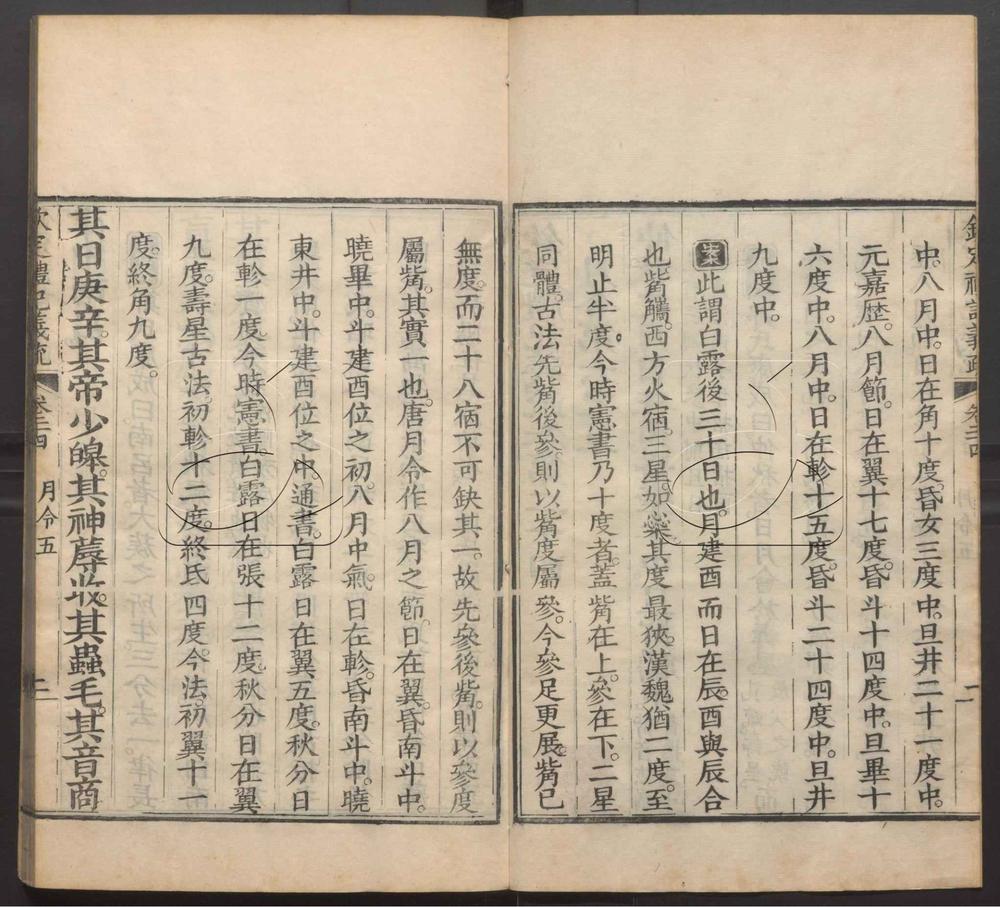 欽定禮記義疏 卷二十四 一
中。八月中。日在角十度。昏女三度中。旦井二十一度中。
元嘉歷。八月節。日在翼十七度。昏斗十四度中。旦畢十
六度中。八月中。日在軫十五度。昏斗二十四度中。旦井
九度中。
案此謂白露後三十日也。月建酉而日在辰。酉與辰合
也。觜觿。西方火宿。三星。如蘂。其度最狹。漢魏猶二度。至
明止半度。今時憲書乃十度者。蓋觜在上。參在下。二星
同體。古法先觜後參。則以觜度屬參。今參足更展。觜已
無度。而二十八宿不可缺其一。故先參後觜。則以參度
屬觜。其實一也。唐月令作八月之節。日在翼。昏南斗中。
曉畢中。斗建酉位之初。八月中氣。日在軫。昏南斗中。曉
東井中。斗建酉位之中。通書。白露日在翼五度。秋分日
在軫一度。今時憲書。白露日在張十二度。秋分日在翼
九度。壽星古法。初軫十二度。終氐四度。今法。初翼十一
度。終角九度。
其日庚辛。其帝少皞。其神蓐收。其蟲毛。其音商
欽定禮記義疏 卷二十四 月令五 二